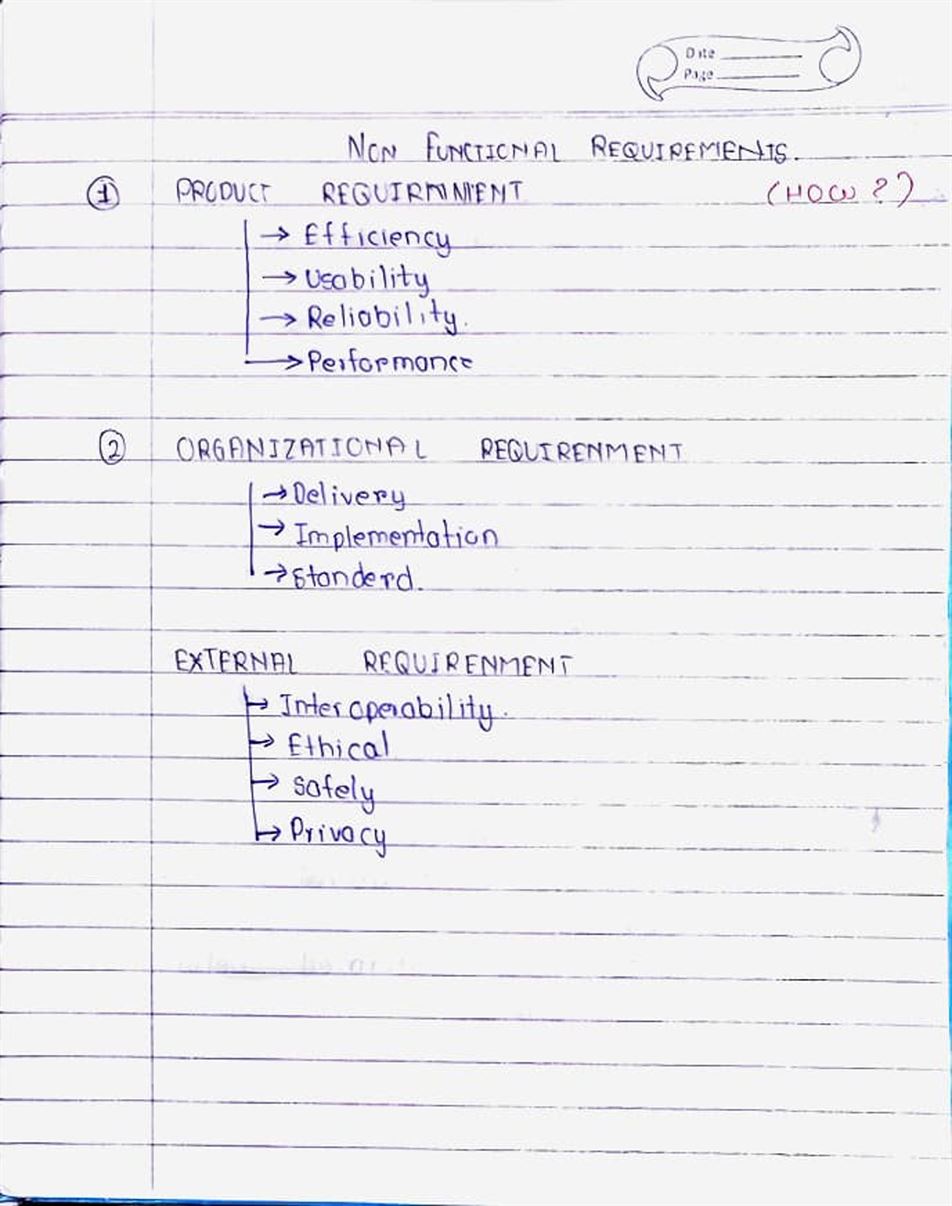 Date
Page
NON FUNCTIONAL REQUIREMENTS.
① PRODUCT REQUIRMNIENT (HOW ?)
→ Efficiency
→ Usability
→ Reliability.
→ Performance
② ORGANIZATIONAL REQUIRENMENT
→ Delivery
→ Implementation
→ Standerd.
EXTERNAL REQUIRENMENT
→ Interoperability.
→ Ethical
→ Safely
→ Privacy